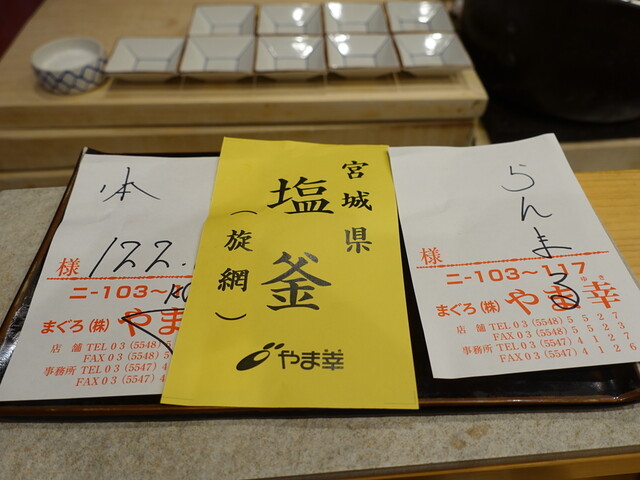 本
122.
様
ニ-103~1
まぐろ(株) やま
店舗 TEL 03 (5548) 5
FAX 03 (5548) 5
事務所 TEL 03 (5547) 4
FAX 03 (5547) 4
宮城県
塩釜
(旋網)
やま幸
らんまる
様
ニ-103~117
まぐろ(株) やま幸
ゆき
店舗 TEL 03 (5548) 5527
FAX 03 (5548) 5523
事務所 TEL 03 (5547) 4127
FAX 03 (5547) 4126